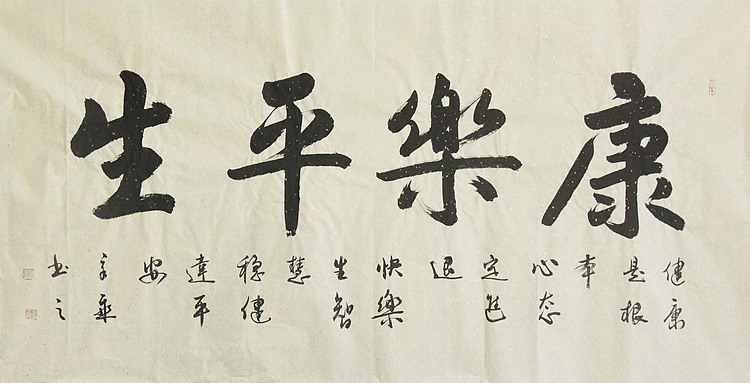 康樂平生
健康
是根
本
心态
定進
退
快樂
生智
慧
穏健
達平
安
书之